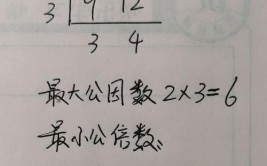 3 9 12
3 4
最大公因数 2×3=6
最小公倍数